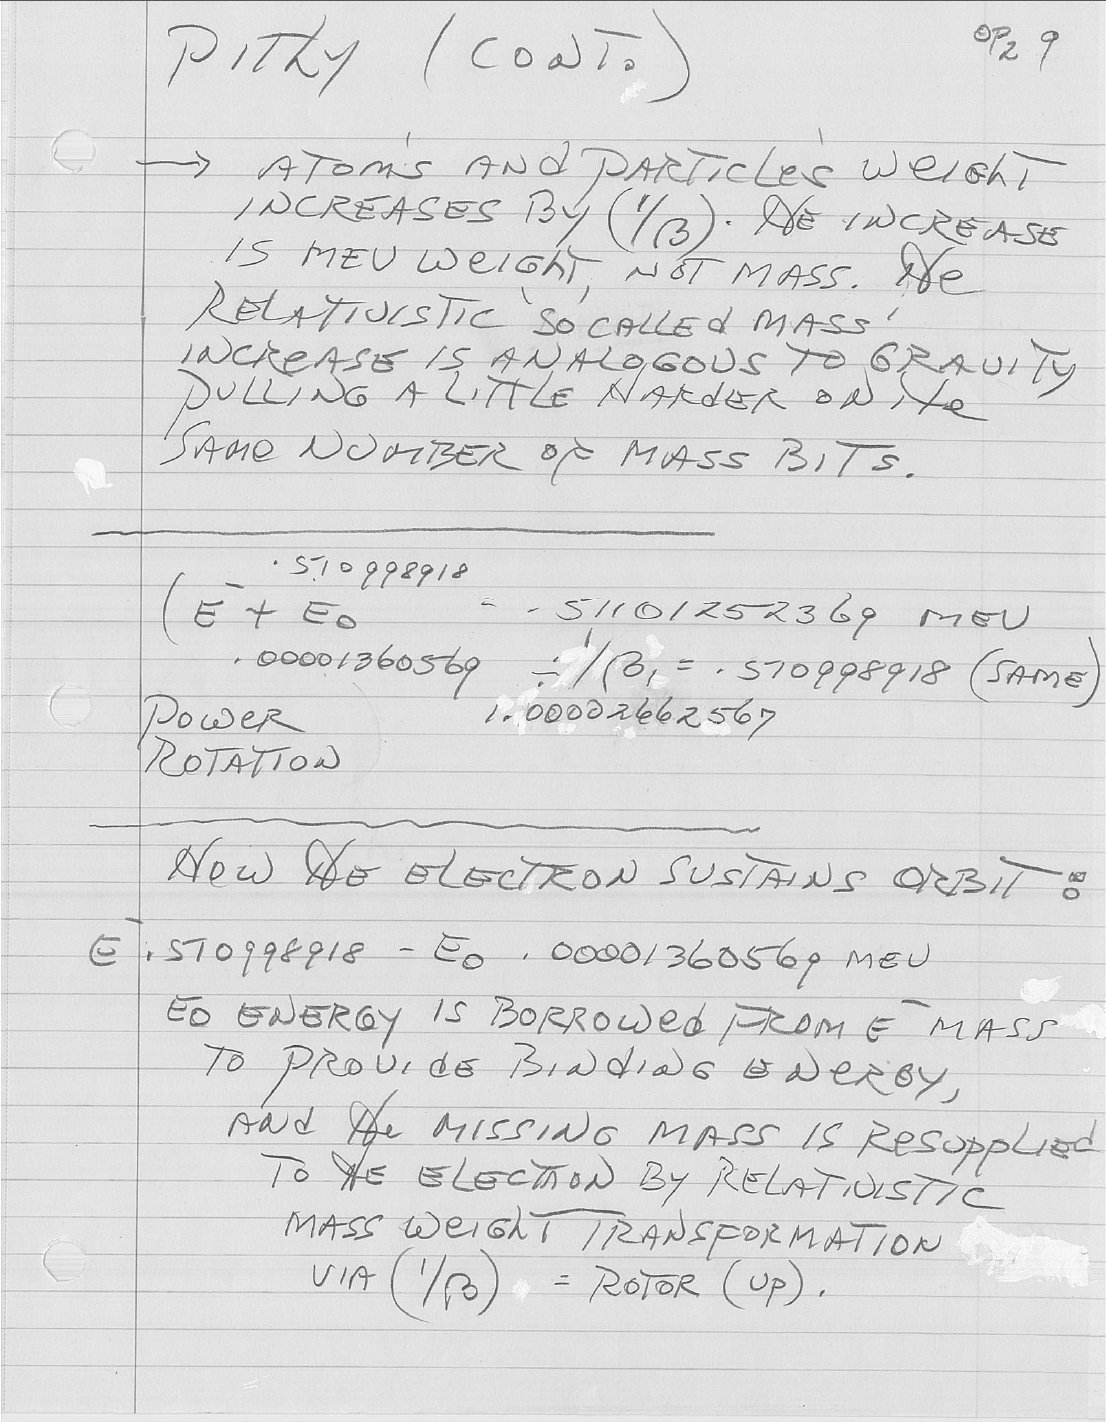 PITHY (CONT.)
OP2 9
→ ATOM'S AND PARTICLE'S WEIGHT
INCREASES BY (1/β). THE INCREASE
IS MEV WEIGHT, NOT MASS. THE
RELATIVISTIC 'SO CALLED MASS'
INCREASE IS ANALOGOUS TO GRAVITY
PULLING A LITTLE HARDER ON THE
SAME NUMBER OF MASS BITS.
.510998918
(E⁻ + E0 = .51101252369 MEV
.00001360569 ÷ 1/β, = .510998918 (SAME)
POWER 1.00002662567
ROTATION
HOW THE ELECTRON SUSTAINS ORBIT:
E⁻ .510998918 - E0 .00001360569 MEV
E0 ENERGY IS BORROWED FROM E⁻ MASS
TO PROVIDE BINDING ENERGY,
AND THE MISSING MASS IS RESUPPLIED
TO THE ELECTRON BY RELATIVISTIC
MASS WEIGHT TRANSFORMATION
VIA (1/β) = ROTOR (UP).